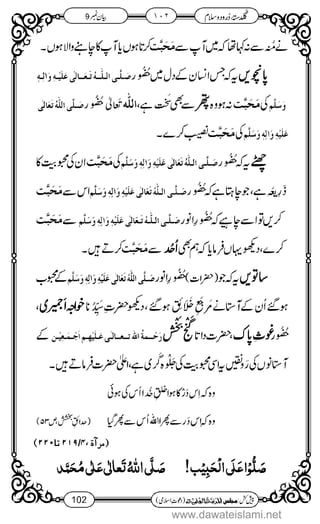 گلدستۂ درود و سلام ۱۰۲ بیان نمبر 9
نے مُنہ سے نہ کہا تھا کہ میں آپ سے مَحَبَّت کرتا ہوں یا آپ کا چاہنے والا ہوں۔
پانچویں یہ کہ جس انسان کے دل میں حُضُور صلَّی اللہ تعالٰی علیہ واٰلہٖ
وسلَّم کی مَحَبَّت نہ ہو وہ پتّھر سے بھی سَخْت ہے، اللہ تعالٰی حُضُور صلَّی اللہ تعالٰی
علیہ واٰلہٖ وسلَّم کی مَحَبَّت نصیب کرے۔
چھٹے یہ کہ حُضُور صلَّی اللہ تعالٰی علیہ واٰلہٖ وسلَّم کی محبوبیت ان کی مَحَبَّت کا
ذریعہ ہے، جو چاہتا ہے کہ حُضُور صلَّی اللہ تعالٰی علیہ واٰلہٖ وسلَّم اس سے مَحَبَّت
کریں تو اسے چاہیے کہ حُضُور انور صلَّی اللہ تعالٰی علیہ واٰلہٖ وسلَّم سے مَحَبَّت
کرے، دیکھو یہاں فرمایا کہ ہم بھی اُحُد سے مَحَبَّت کرتے ہیں۔
ساتویں یہ کہ جو (حضرات) حُضُور انور صلَّی اللہ تعالٰی علیہ واٰلہٖ وسلَّم کے محبوب
ہوگئے اُن کے آستانے مَرجَعِ خَلائِق ہوگئے، دیکھو حضرتِ سَیِّدُنا خواجہ اجمیری،
حُضُور غوثِ پاک، حضرت داتا گنج بخش رحمۃُ اللہ تعالٰی علیہم اجمعین کے
آستانوں کی رونقیں یہ اسی محبوبیت کی جَلوہ گَری ہے، اعلیٰ حضرت فرماتے ہیں۔
وہ کہ اِس در کا ہوا خلقِ خُدا اُس کی ہوئی
وہ کہ اِس دَر سے پھرا اللہ اُس سے پھر گیا (حدائقِ بخشش، ص۵۳)
(مرآۃ ۳/ ۲۱۹ تا ۲۲۰)
صَلُّوْا عَلَی الْحَبِیْب! صَلَّی اللّٰہُ تَعَالٰی عَلٰی مُحَمَّد
102
www.dawateislami.net